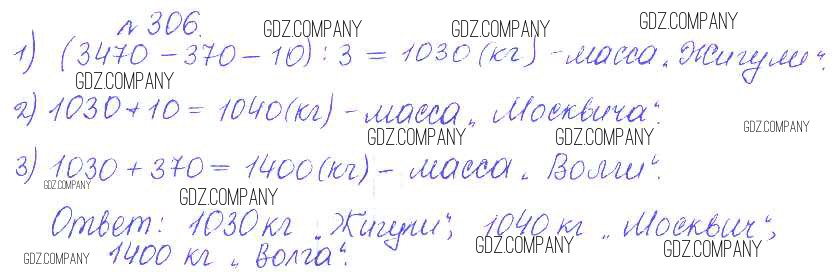 № 306. GDZ.COMPANY GDZ.COMPANY GDZ.COMPANY
1) (3470 - 370 - 10) : 3 = 1030 (кг) - масса „Жигули“.
GDZ.COMPANY
2) 1030 + 10 = 1040 (кг) - масса „Москвича“.
GDZ.COMPANY GDZ.COMPANY GDZ.COMPANY
3) 1030 + 370 = 1400 (кг) - масса „Волги“.
GDZ.COMPANY GDZ.COMPANY
Ответ: 1030 кг „Жигули“, 1040 кг „Москвич“,
GDZ.COMPANY 1400 кг „Волга“. GDZ.COMPANY GDZ.COMPANY